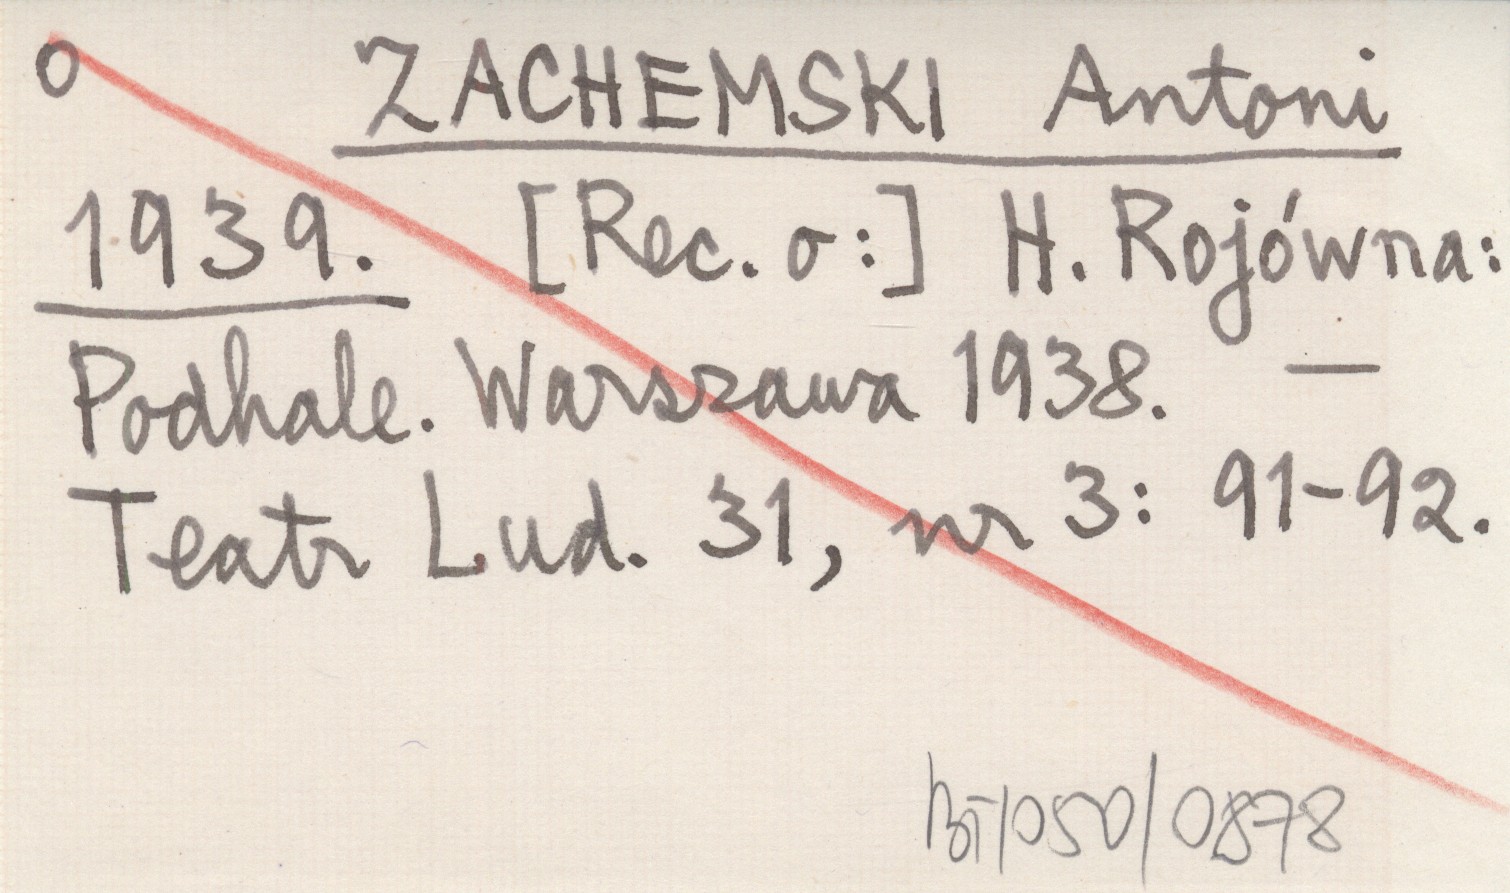 o ZACHEMSKI Antoni
1939. [Rec. o:] H. Rojówna:
Podhale. Warszawa 1938. —
Teatr Lud. 31, nr 3: 91-92.
BT/050/0878